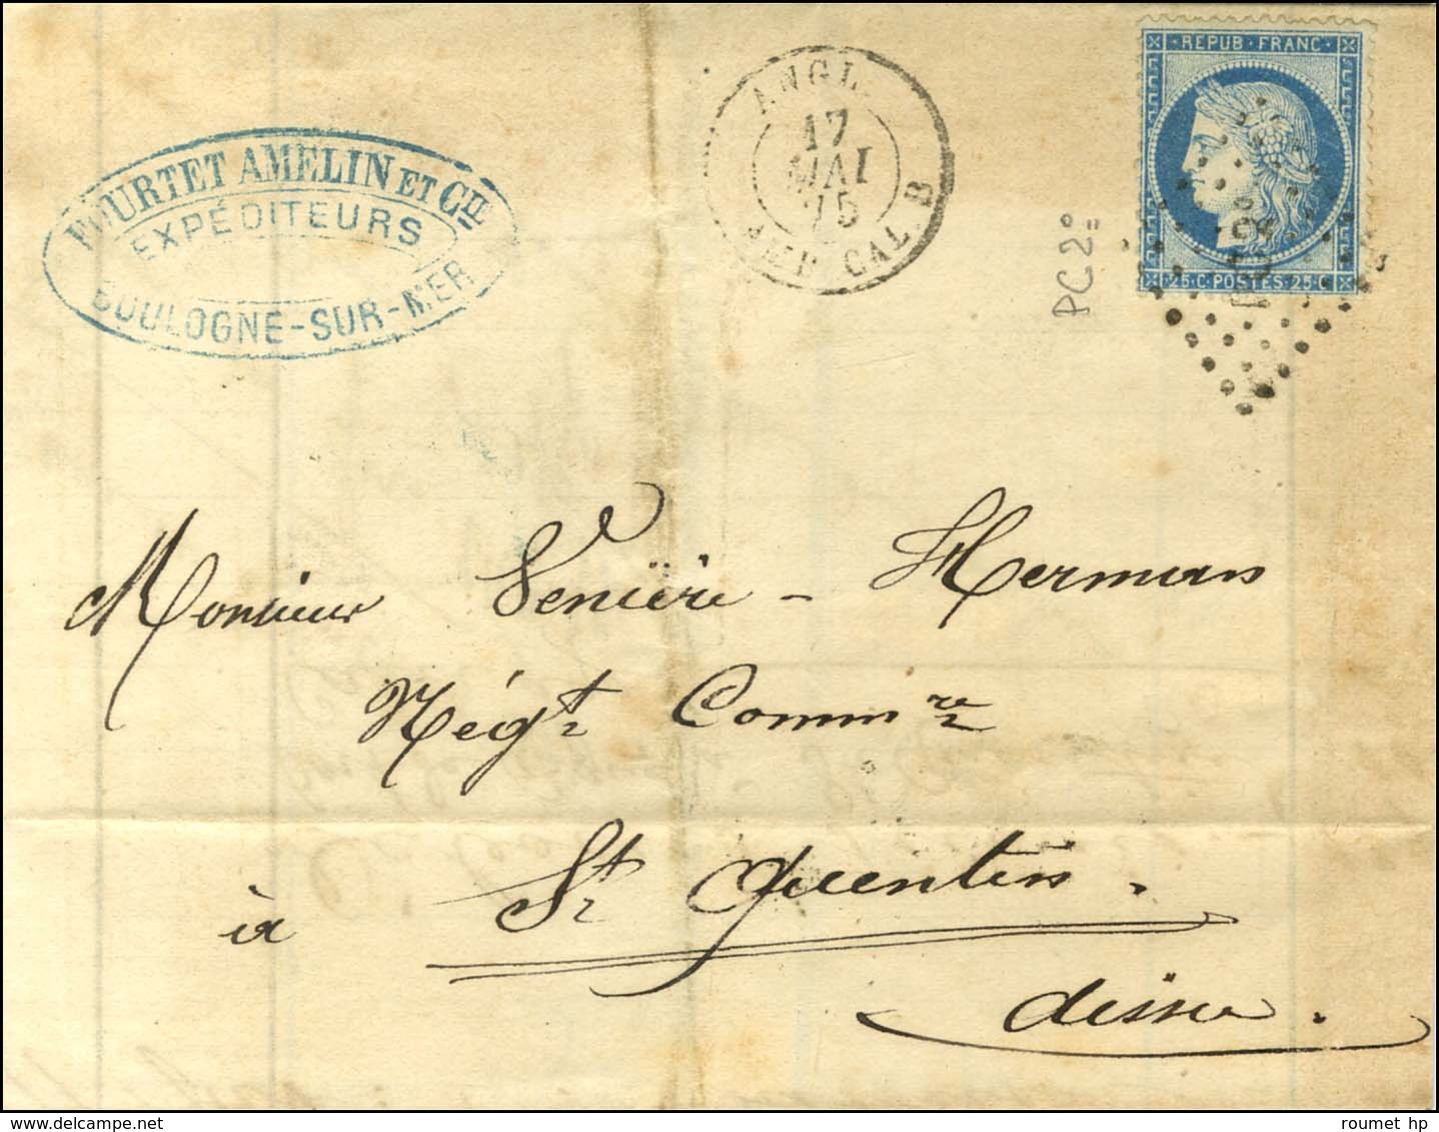 FOURTET AMELIN ET CIE
EXPÉDITEURS
BOULOGNE-SUR-MER
ANGL.
17
MAI
75
AMB. CAL. B
PC2º
REPUB·FRANC·
25·C·POSTES·25·C
Monsieur - Hermans
Négt Commre
à St Quentin.
roumet hp